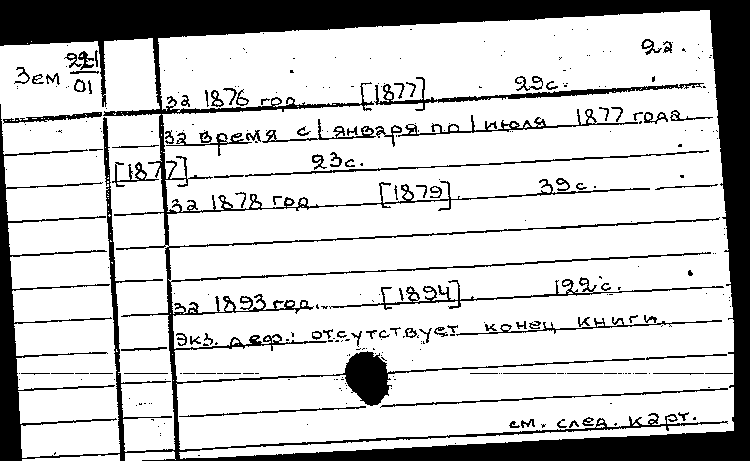 2а.
Зем 221/01
за 1876 год. [1877]. 29с.
за время с 1 января по 1 июля 1877 года.
[1877]. 23с.
за 1878 год. [1879]. 39с.
за 1893 год. [1894]. 122с.
Экз. деф.: отсутствует конец книги.
см. след. карт.